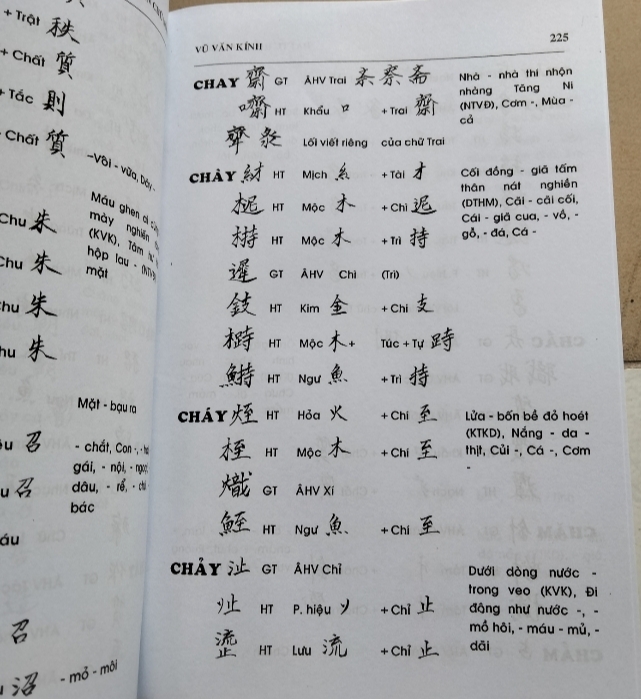 + Trật 秩
+ Chất 質
+ Tắc 則
+ Chất 質
-Vôi - vữa, Dày -
Máu ghen ai cũng
mày nghiến
(KVK), Tâm
hộp lau - (NTVĐ)
mặt
Chu 朱
Chu 朱
Chu 朱
Chu 朱
Mặt - bạu ra
召
- chắt, Con -, -
gái, - nội, - ngoại
dâu, - rể, - chi
bác
召
召
沼 - mỏ - môi
VŨ VĂN KÍNH 225
CHAY 齋 GT ÂHV Trai 亝 斎 Nhà - nhà thi nhộn
nhàng Tăng Ni
(NTVĐ), Cơm -, Mùa -
cả
HT Khẩu 口 + Trai 齋
齊 Lối viết riêng của chữ Trai
CHÀY 財 HT Mịch 糸 + Tài 才 Cối đồng - giã tấm
thân nát nghiền
(DTHM), Cãi - cãi cối,
Cái - giã cua, - vồ, -
gỗ, - đá, Cá -
柅 HT Mộc 木 + Chi 迡
HT Mộc 木 + Trì 持
遲 GT ÂHV Chi (Trì)
HT Kim 金 + Chi 支
HT Mộc 木 + Túc + Tự 跱
HT Ngư 魚 + Trì 持
CHÁY 烓 HT Hỏa 火 + Chi 至 Lửa - bốn bề đỏ hoét
(KTKD), Nắng - da -
thịt, Củi -, Cá -, Cơm
-
桎 HT Mộc 木 + Chi 至
熾 GT ÂHV Xí
HT Ngư 魚 + Chi 至
CHẢY 沚 GT ÂHV Chỉ Dưới dòng nước -
trong veo (KVK), Đi
động như nước -, -
mồ hôi, - máu - mủ, -
dãi
HT P. hiệu + Chỉ 止
HT Lưu 流 + Chỉ 止